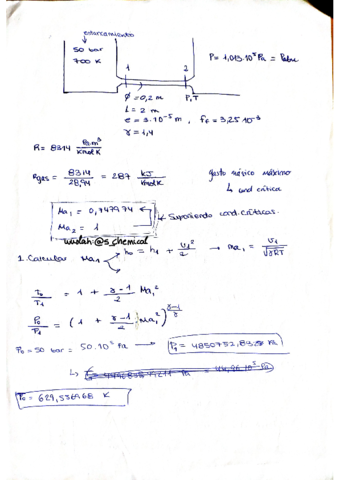 estancamiento
50 bar
700 K
1 2
P = 1,013·10⁵ Pa = Patm
ϕ = 0,2 m P,T
L = 2 m
ε = 3·10⁻⁵ m, f_f = 3,25·10⁻³
γ = 1,4
R = 8314 Pa·m³ / Kmol K
Rgas = 8314 / 28,94 = 287 KJ / Kmol K gasto másico máximo
↳ cond crítica
Ma₁ = 0,747974
Ma₂ = 1 Suponiendo cond. críticas.
wuolah:@s_chemical
1. Calcular Ma₁ h₀ = h₁ + v₁² / 2 → Ma₁ = v₁ / √γRT
T₀ / T₁ = 1 + γ-1 / 2 Ma₁²
P₀ / P₁ = (1 + γ-1 / 2 Ma₁²)
P₀ = 50 bar = 50·10⁵ Pa → P₁ = 4850752,83 Pa
T₀ = 629,536968 K